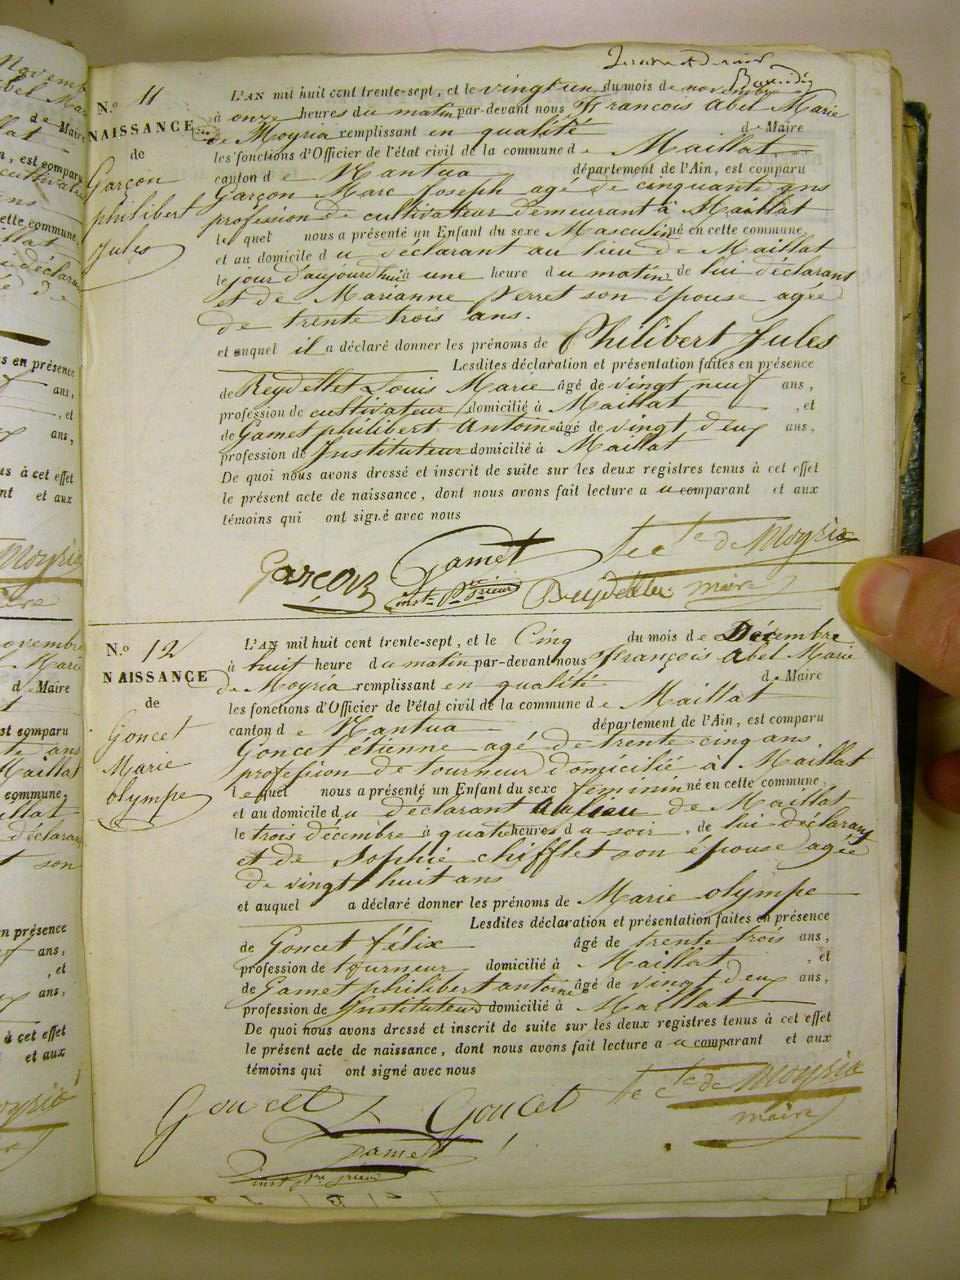 N.º 11
NAISSANCE
de
Garçon
philibert
Jules
L'AN mil huit cent trente-sept, et le vingt un du mois de novembre
à onze heures du matin par-devant nous François Abel Marie
de Moyria remplissant en qualité de Maire
les fonctions d'Officier de l'état civil de la commune de Maillat
canton de Nantua département de l'Ain, est comparu
Garçon Marc Joseph agé de cinquante ans
profession de cultivateur demeurant à Maillat
lequel nous a présenté un Enfant du sexe Masculin né en cette commune
et au domicile du déclarant au lieu de Maillat
le jour d'aujourd'hui à une heure du matin, de lui déclarant
et de Marianne Perret son épouse agée
de trente trois ans.
et auquel il a déclaré donner les prénoms de Philibert Jules
Lesdites déclaration et présentation faites en présence
de Reydellet Louis Marie âgé de vingt neuf ans,
profession de cultivateur domicilié à Maillat , et
de Gamet philibert Antoine âgé de vingt deux ans,
profession de Instituteur domicilié à Maillat
De quoi nous avons dressé et inscrit de suite sur les deux registres tenus à cet effet
le présent acte de naissance, dont nous avons fait lecture a u comparant et aux
témoins qui ont signé avec nous
Garçon Gamet le Cte de Moyria
Reydellet maire
N.º 12
NAISSANCE
de
Goncet
Marie
olympe
L'AN mil huit cent trente-sept, et le Cinq du mois de Décembre
à huit heure du matin par-devant nous François Abel Marie
de Moyria remplissant en qualité de Maire
les fonctions d'Officier de l'état civil de la commune de Maillat
canton de Nantua département de l'Ain, est comparu
Goncet étienne agé de trente cinq ans
profession de tourneur domicilié à Maillat
lequel nous a présenté un Enfant du sexe féminin né en cette commune,
et au domicile du déclarant au lieu de Maillat
le trois décembre à quatre heures du soir, de lui déclarant
et de Sophie chifflet son épouse agée
de vingt huit ans
et auquel a déclaré donner les prénoms de Marie olympe
Lesdites déclaration et présentation faites en présence
de Goncet félix âgé de trente trois ans,
profession de tourneur domicilié à Maillat , et
de Gamet philibert antoine âgé de vingt deux ans,
profession de Instituteur domicilié à Maillat
De quoi nous avons dressé et inscrit de suite sur les deux registres tenus à cet effet
le présent acte de naissance, dont nous avons fait lecture a u comparant et aux
témoins qui ont signé avec nous
Goncet Goncet le Cte de Moyria
Gamet maire